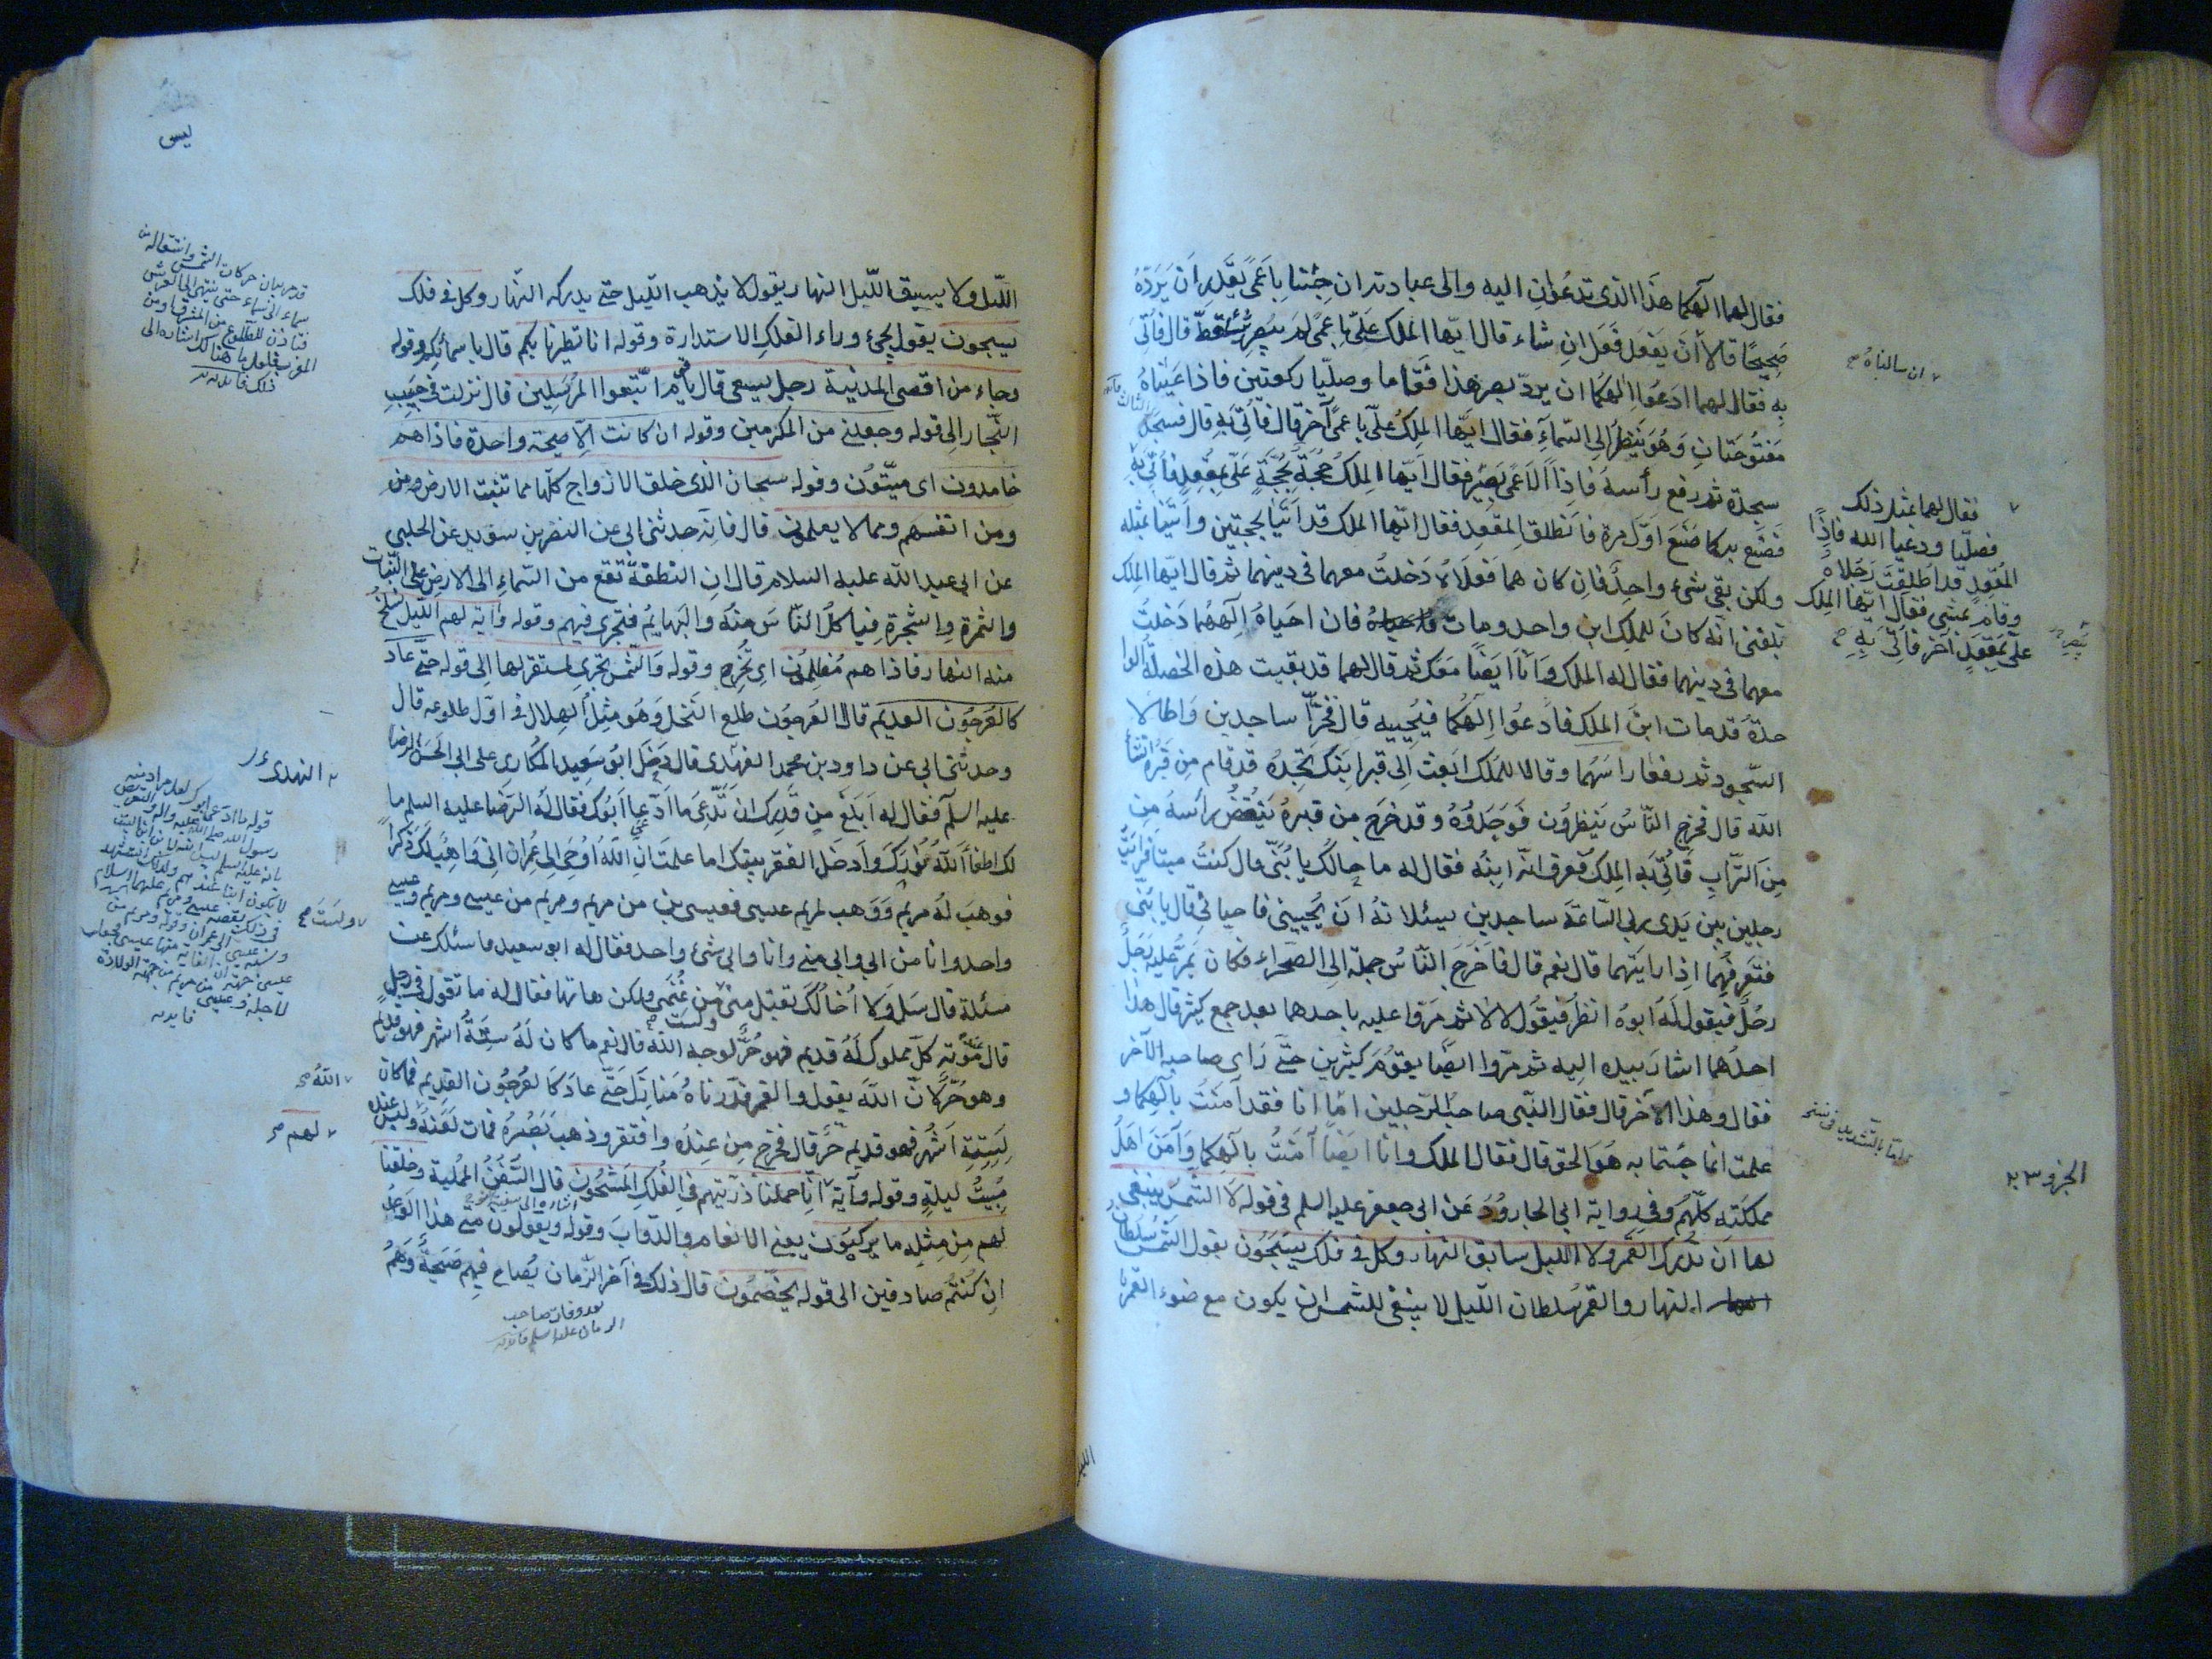 فقال لهما الهكما هذا الذى تدعوان اليه والى عبادته ان جئنا باعمى يقدر ان يرده
صحيحا قالا ان يفعل فعل ان شاء قال ايها الملك علىّ باعمى لم يبصر شيئا قط قال فأتى
به فقال لهما ادعوا الهكما ان يردّ بصر هذا فقاما وصليا ركعتين فاذا عيناه
مفتوحتان وهو ينظر الى السماء فقال ايها الملك علىّ باعمى آخر قال فأتى به قال فسجد
سجدة ثم رفع رأسه فاذا الاعمى بصير فقال ايها الملك حجة بحجة علىّ بمقعد فأتى به
فصنع به كما صنع اول مرة فانطلق المقعد فقال ايها الملك قد اتيا بحجتين واتينا بمثله
ولكن بقى شىء واحد فان كان هما فعلاه دخلت معهما فى دينهما ثم قال ايها الملك
بلغنى انه كان للملك ابن واحد ومات فان احياه الههما دخلت
معهما فى دينهما فقال له الملك وانا ايضا معك ثم قال لهما قد بقيت هذه الخصلة الوا
حدة قد مات ابن الملك فادعوا الهكما فيحييه قال فخرّا ساجدين واطالا
السجود ثم رفعا راسهما وقالا للملك ابعث الى قبر ابنك تجده قد قام من قبره انشا
الله قال فخرج الناس ينظرون فوجدوه وقد خرج من قبره ينفض رأسه من
من التراب فأتى به الملك فعرف انه ابنه فقال له ما حالك يا بنىّ قال كنت ميتا فرايت
رجلين بين يدى ربى الساعة ساجدين يسئلانه ان يحيينى فاحيانى قال يا بنىّ
فتعرفهما اذا رايتهما قال نعم قال فاخرج الناس جملة الى الصحراء فكان يمرّ عليه رجل
رجل فيقول له ابوه انظر فيقول لا لا ثم مرّوا عليه باحدهما بعد جمع كثير قال هذا
احدهما اشار بيده اليه ثم مرّوا ايضا بقوم كثيرين حتى راى صاحبه الآخر
فقال وهذا الآخر قال فقال النبى صاحب الرجلين امّا انا فقد آمنت بالهكما و
علمت انما جئتما به هو الحق قال فقال الملك وانا ايضا آمنت بالهكما وآمن اهل
مملكته كلهم وفى رواية ابى الجارود عن ابى جعفر عليه السلم فى قوله لا الشمس ينبغى
لها ان تدرك القمر ولا الليل سابق النهار وكل فى فلك يسبحون يقول الشمس سلطان
النهار والقمر سلطان الليل لا ينبغى للشمس ان يكون مع ضوء القمر با
الليل
ان سالناه
فقال لهما بمثل ذلك
فصليا ودعيا الله فاذا
المقعد قد اطلقت رجلاه
وقام يمشى فقال ايها الملك
علىّ بمقعد آخر فأتى به
الجزو ٢٣
الليل ولا يسبق الليل النهار يقول لا يذهب الليل حتى يدركه النهار وكل فى فلك
يسبحون يقول يجىء وراء الفلك الاستدارة وقوله انا تطيرنا بكم قال باسمائكم وقوله
وجاء من اقصى المدينة رجل يسعى قال يا قوم اتبعوا المرسلين قال نزلت فى حبيب
النجار الى قوله وجعلنى من المكرمين وقوله ان كانت الا صيحة واحدة فاذا هم
خامدون اى ميتون وقوله سبحان الذى خلق الازواج كلها مما تنبت الارض ومن
ومن انفسهم ومما لا يعلمون قال فانه حدثنى ابى عن النضر بن سويد عن الحلبى
عن ابى عبد الله عليه السلام قال ان النطفة تقع من السماء الى الارض على النبات
والثمرة والشجرة فياكل الناس منه والبهايم فتجرى فيهم وقوله وآية لهم الليل نسلخ
منه النهار فاذا هم مظلمون اى تخرج وقوله والشمس تجرى لمستقر لها الى قوله حتى عاد
كالعرجون القديم قال العرجون طلع النخل وهو مثل الهلال فى اول طلوعه قال
وحدثنى ابى عن داود بن محمد الفهدى قال دخل ابو سعيد المكارى على ابى الحسن الرضا
عليه السلم فقال له ابلغ من قدرك ان تدّعى ما ادّعا ابوك فقال له الرضا عليه السلم ما
لك اطفأ الله نورك وادخل الفقر بيتك اما علمت ان الله اوحى الى عمران انى واهب لك ذكرا
فوهب له مريم ووهب لمريم عيسى فعيسى من مريم ومريم من عيسى ومريم وعيسى
واحد وانا من ابى وابى منى وانا وابى شىء واحد فقال له ابو سعيد فاسئلك عن
مسئلة قال سل ولا اخالك تقبل منى من غنمى ولكن هاتها فقال له ما تقول فى رجل
قال عند موته كل مملوك له قديم فهو حرّ لوجه الله قال نعم ما كان له ستة اشهر فهو قديم
وهو حرّ لان الله يقول والقمر قدرناه منازل حتى عاد كالعرجون القديم فما كان
لستة اشهر فهو قديم حرّ قال فخرج من عنده وافتقر وذهب بصره فمات لعنه وليس عنده
مبيت ليلة وقوله وآية انا حملنا ذريتهم فى الفلك المشحون قال السفن المملية وخلقنا
لهم من مثله ما يركبون يعنى الانعام والدواب وقوله ويقولون متى هذا الوعد
ان كنتم صادقين الى قوله يخصمون قال ذلك فى آخر الزمان يصاح فيهم صيحة وهم
ليس
النهدى
ولست
الله
لهم